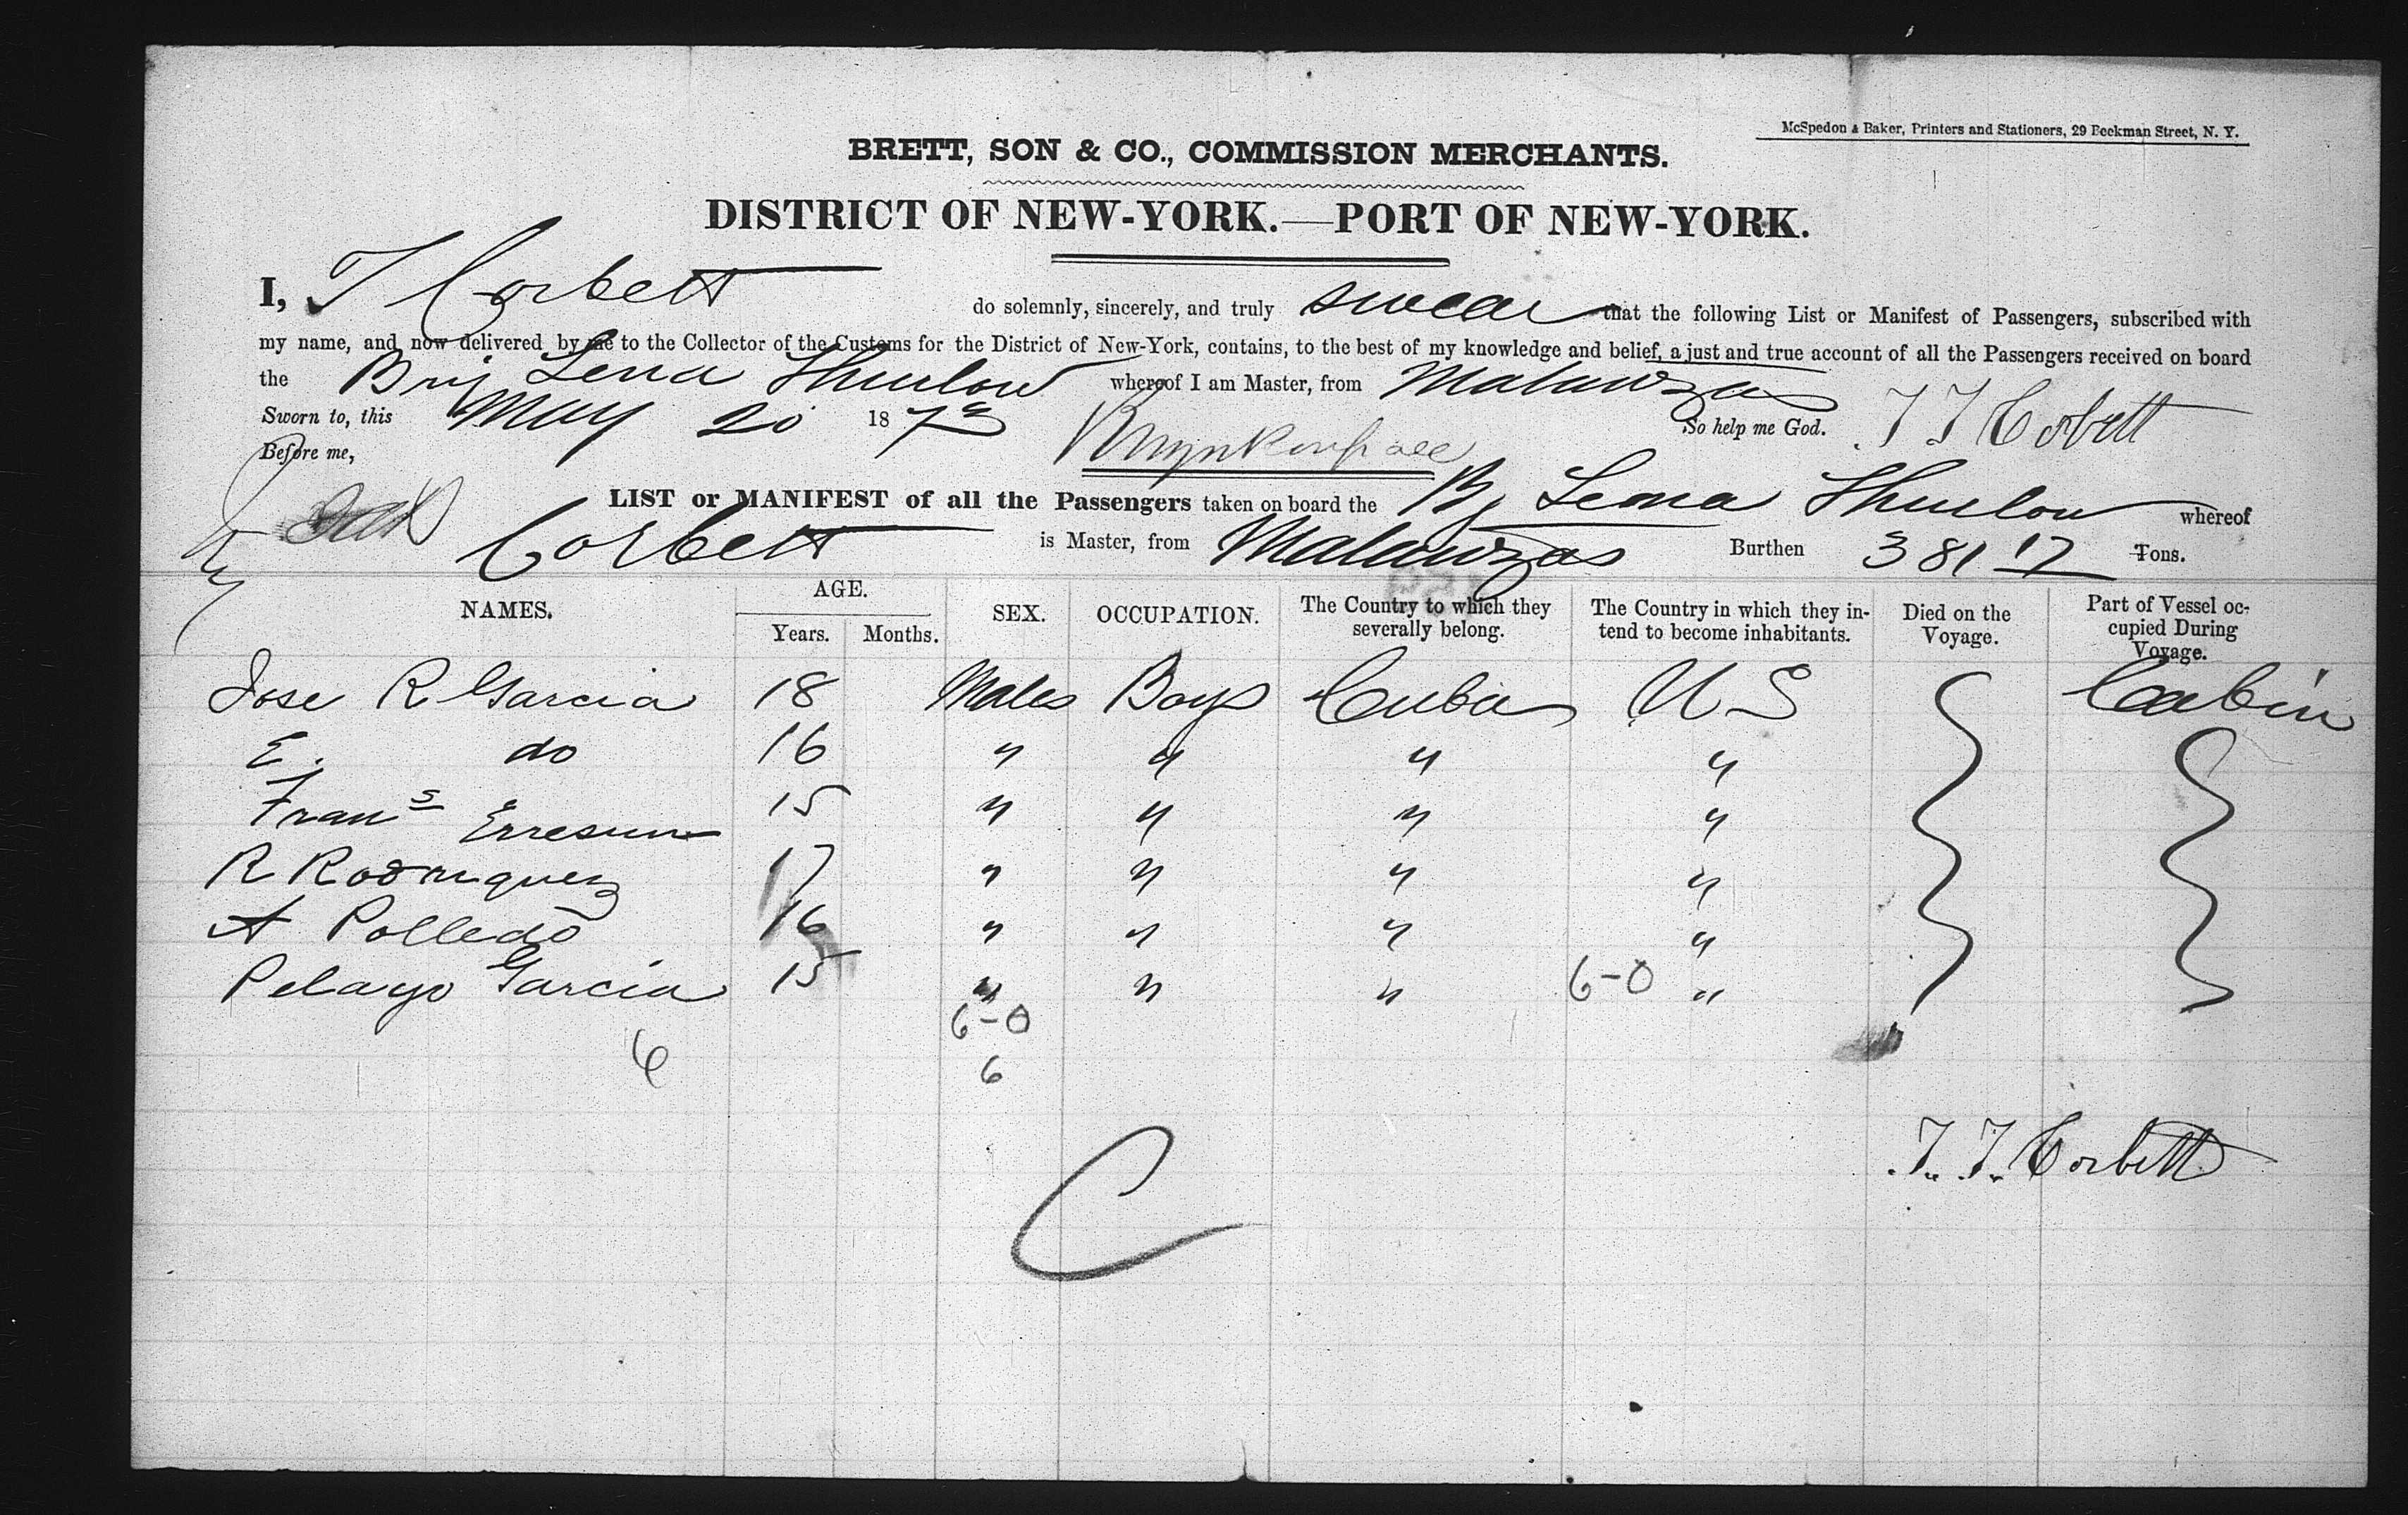 McSpedon & Baker, Printers and Stationers, 29 Beekman Street, N. Y.
BRETT, SON & CO., COMMISSION MERCHANTS.
DISTRICT OF NEW-YORK.—PORT OF NEW-YORK.
I, T Corbett do solemnly, sincerely, and truly swear that the following List or Manifest of Passengers, subscribed with
my name, and now delivered by me to the Collector of the Customs for the District of New-York, contains, to the best of my knowledge and belief, a just and true account of all the Passengers received on board
the Brig Lena Thurlow whereof I am Master, from Matanzas
Sworn to, this May 20 187 So help me God. T T Corbett
Before me,
LIST or MANIFEST of all the Passengers taken on board the Bg Lena Thurlow whereof
Corbett is Master, from Matanzas Burthen 381 17 Tons.
NAMES. AGE. Years. Months. SEX. OCCUPATION. The Country to which they severally belong. The Country in which they intend to become inhabitants. Died on the Voyage. Part of Vessel occupied During Voyage.
Jose R Garcia 18 Males Boys Cuba U S Cabin
E. do 16 " " " "
Frans 15 " " " "
R Rodriguez 17 " " " "
A Polledo 16 " " " "
Pelayo Garcia 15 " " " 6-0 "
6-0
6 6
T. T. Corbett
C